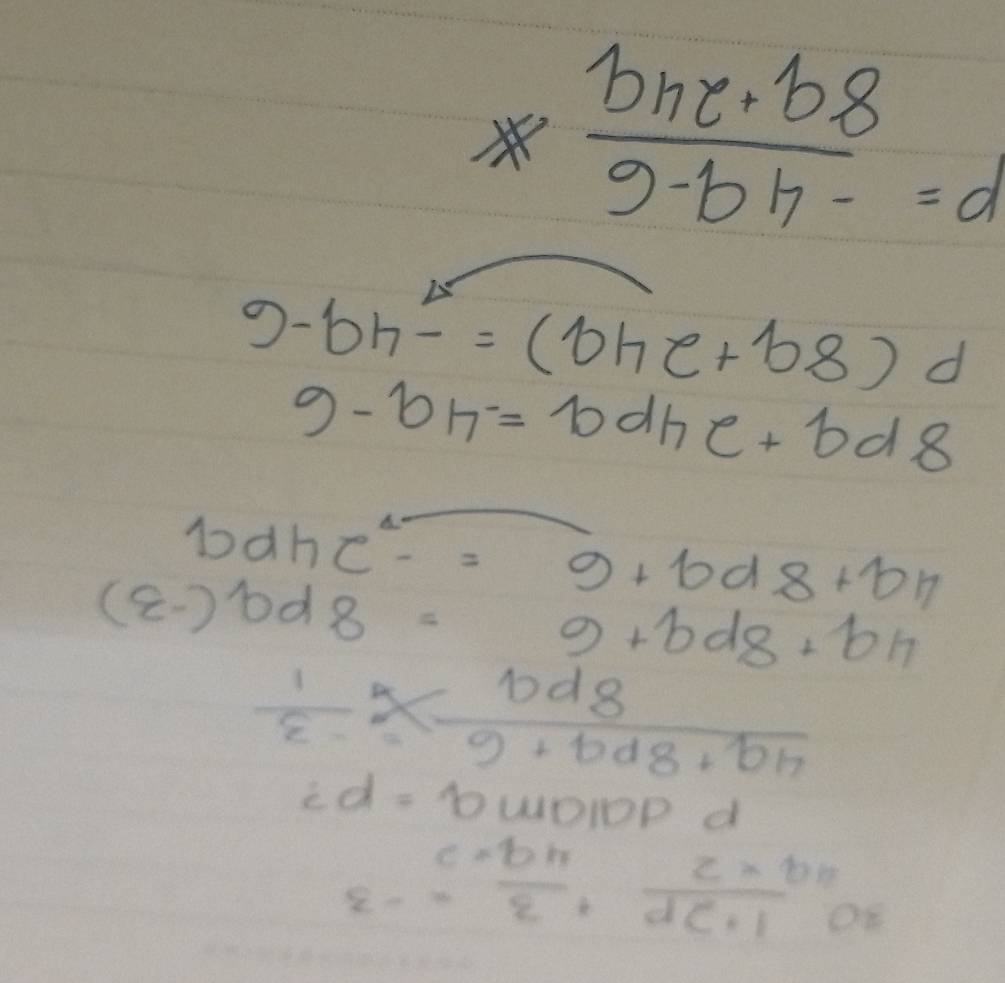 30 1+2p + 3 = -3
4q × 2 4q ×
P dalam q = p?
4q + 8pq + 6 = -3
8pq 1
4q + 8pq + 6 = 8pq (-3)
4q + 8pq + 6 = -24pq
8pq + 24pq = -4q - 6
P (8q + 24q) = -4q - 6
P = -4q - 6
8q + 24q